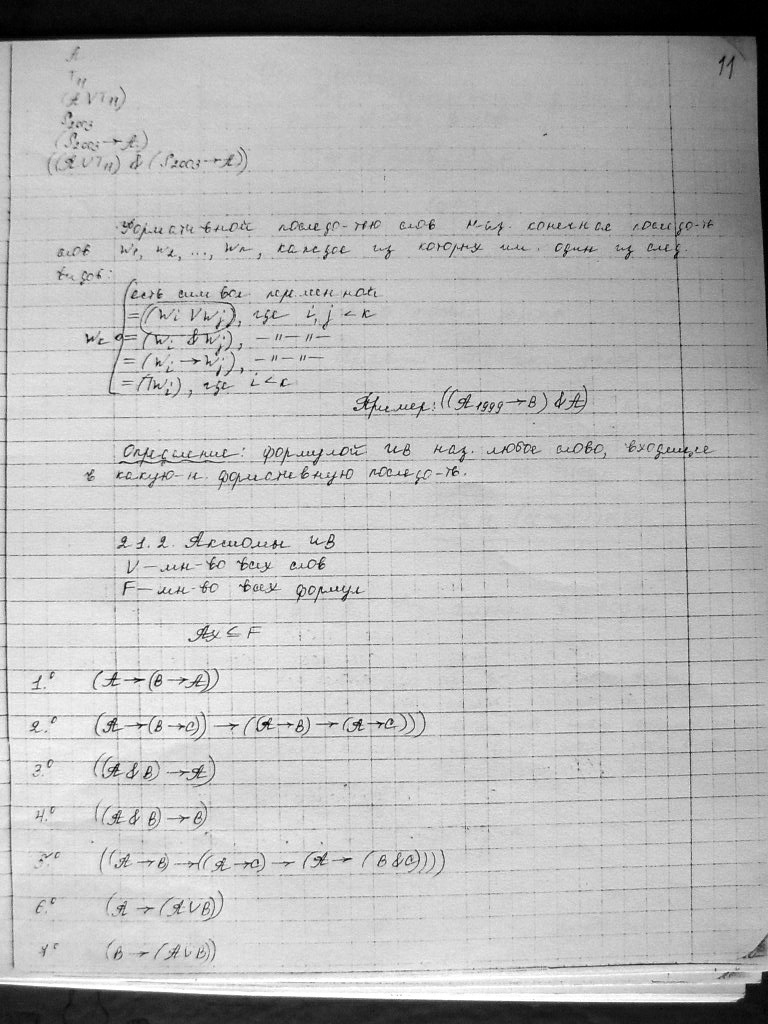 11
A
T₁₁
(A∨T₁₁)
S₂₀₀₃
(S₂₀₀₃→A)
((A∨T₁₁) & (S₂₀₀₃→A))
Формативной последо-тью слов н-ся конечная последо-ть
слов w₁, w₂, ..., wₙ, каждое из которых им. один из след.
видов:
есть символ переменной
= (wᵢ ∨ wⱼ), где i, j < k
wₖ = (wᵢ & wⱼ), —"—"—
= (wᵢ → wⱼ), —"—"—
= (˥wᵢ), где i < k
Пример: ((A₁₉₉₉→B) & A)
Определение: формулой ИВ наз. любое слово, входящее
в какую-н. формативную последо-ть.
2.1.2. Аксиомы ИВ
V — мн-во всех слов
F — мн-во всех формул
Ax ⊆ F
1.° (A→(B→A))
2.° (A→(B→C))→((A→B)→(A→C)))
3.° ((A & B)→A)
4.° ((A & B)→B)
5.° ((A→B)→((A→C)→(A→(B&C))))
6.° (A→(A∨B))
7.° (B→(A∨B))